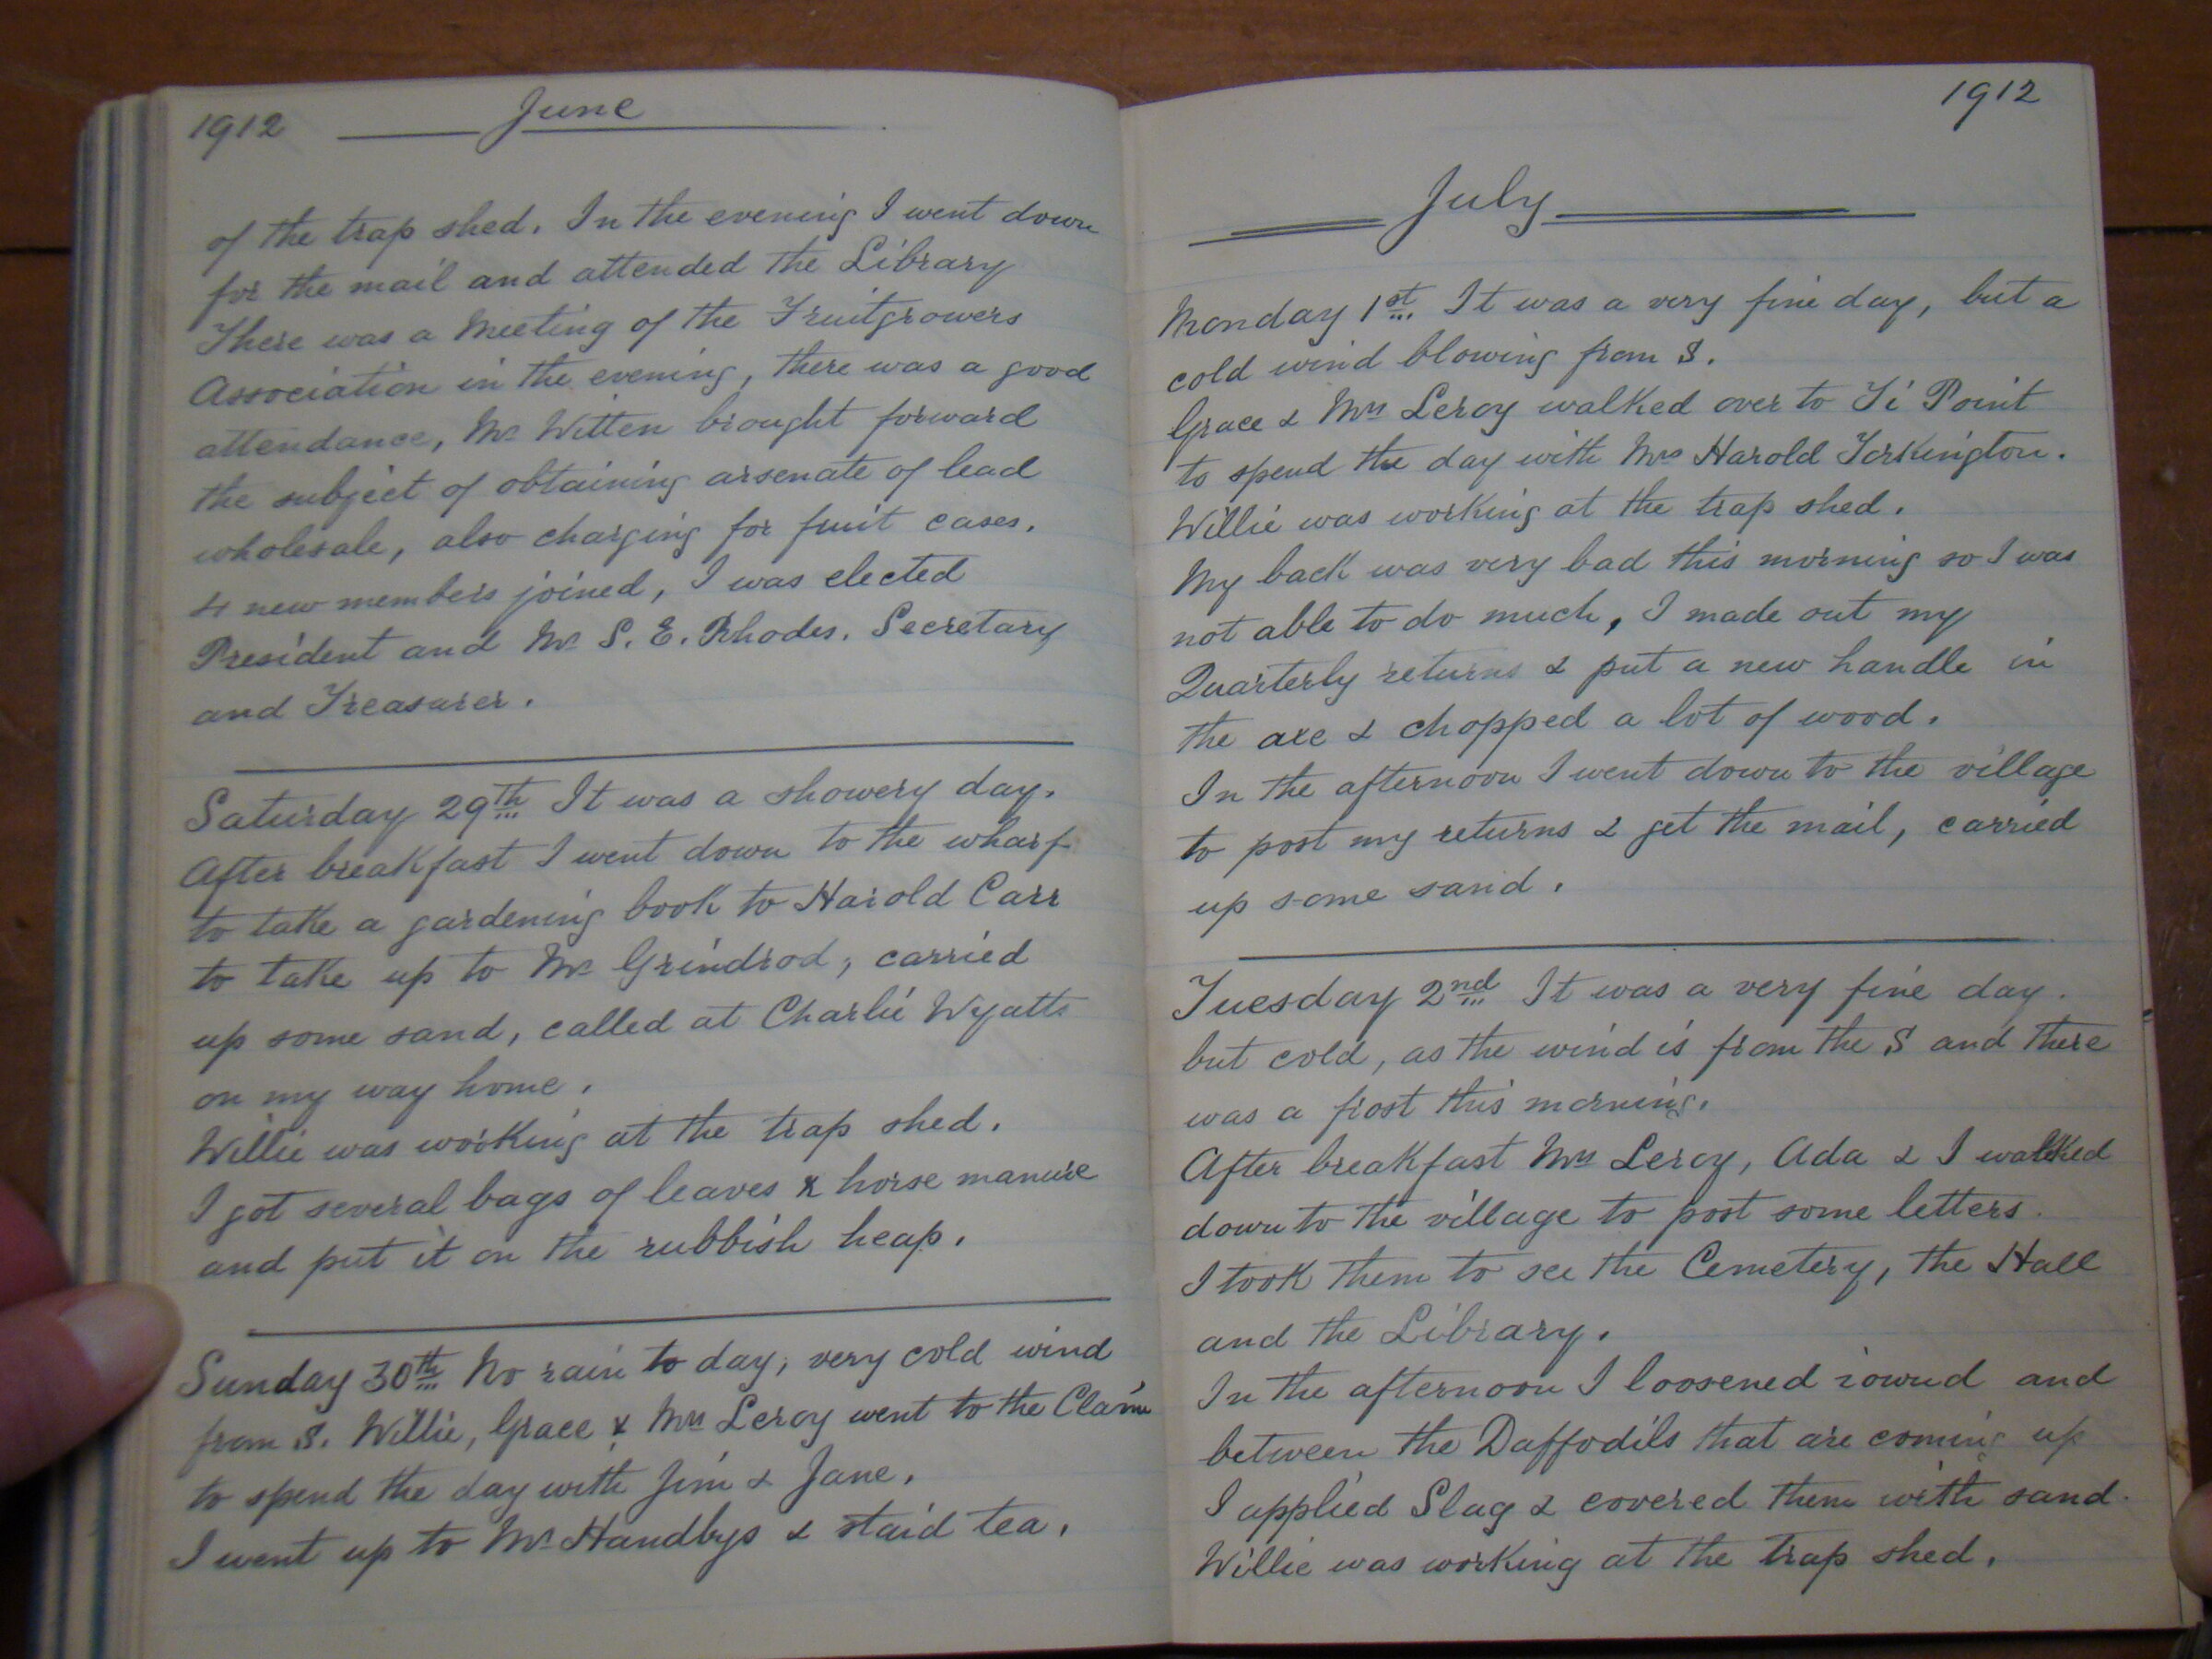 1912 June
of the trap shed. In the evening I went down
for the mail and attended the Library
There was a Meeting of the Fruitgrowers
Association in the evening, there was a good
attendance, Mr Witten brought forward
the subject of obtaining arsenate of lead
wholesale, also charging for fruit cases.
4 new members joined, I was elected
President and Mr S. E. Rhodes. Secretary
and Treasurer.
Saturday 29th It was a showery day.
After breakfast I went down to the wharf
to take a gardening book to Harold Carr
to take up to Mr Grindrod, carried
up some sand, called at Charlie Wyatts
on my way home.
Willie was working at the trap shed.
I got several bags of leaves & horse manure
and put it on the rubbish heap.
Sunday 30th No rain to day, very cold wind
from S. Willie, Grace & Mrs Leroy went to the Claim
to spend the day with Jim & Jane.
I went up to Mr Handbys & staid tea.
1912
July
Monday 1st It was a very fine day, but a
cold wind blowing from S.
Grace & Mrs Leroy walked over to Ti Point
to spend the day with Mrs Harold Torkington.
Willie was working at the trap shed.
My back was very bad this morning so I was
not able to do much, I made out my
Quarterly returns & put a new handle in
the axe & chopped a lot of wood.
In the afternoon I went down to the village
to post my returns & get the mail, carried
up some sand.
Tuesday 2nd It was a very fine day.
but cold, as the wind is from the S and there
was a frost this morning.
After breakfast Mrs Leroy, Ada & I walked
down to the village to post some letters.
I took them to see the Cemetery, the Hall
and the Library.
In the afternoon I loosened round and
between the Daffodils that are coming up
I applied Slag & covered them with sand.
Willie was working at the trap shed.